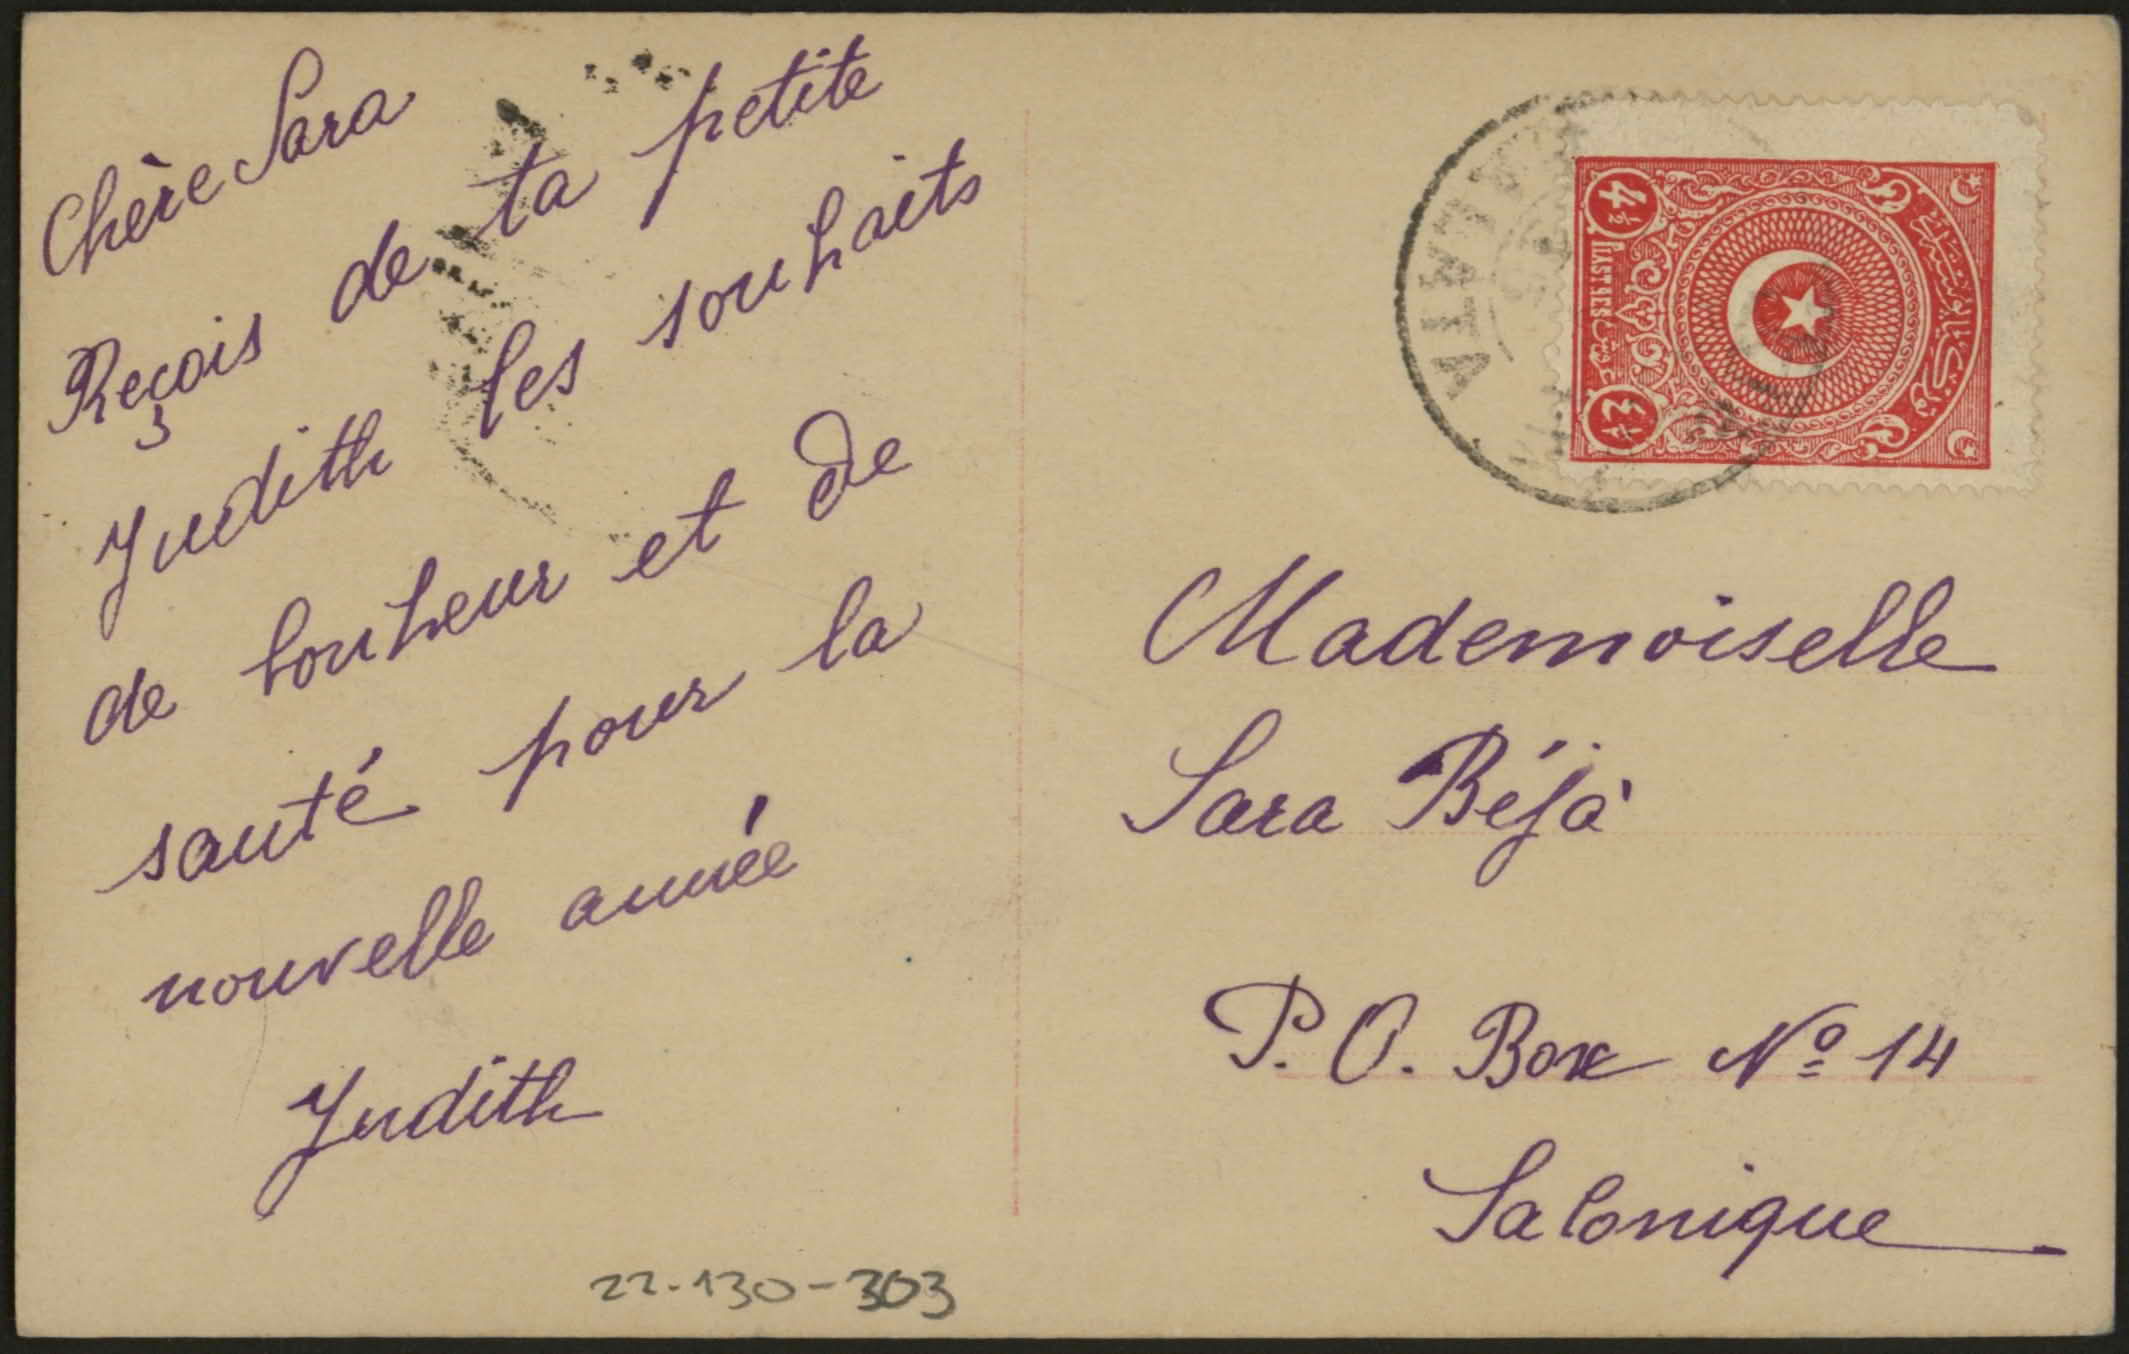 Chère Sara
Reçois de ta petite
Judith les souhaits
de bonheur et de
santé pour la
nouvelle année
Judith
22-130-303
GALATA
4½
PIASTRES
Mademoiselle
Sara Béja
P. O. Box Nº 14
Salonique